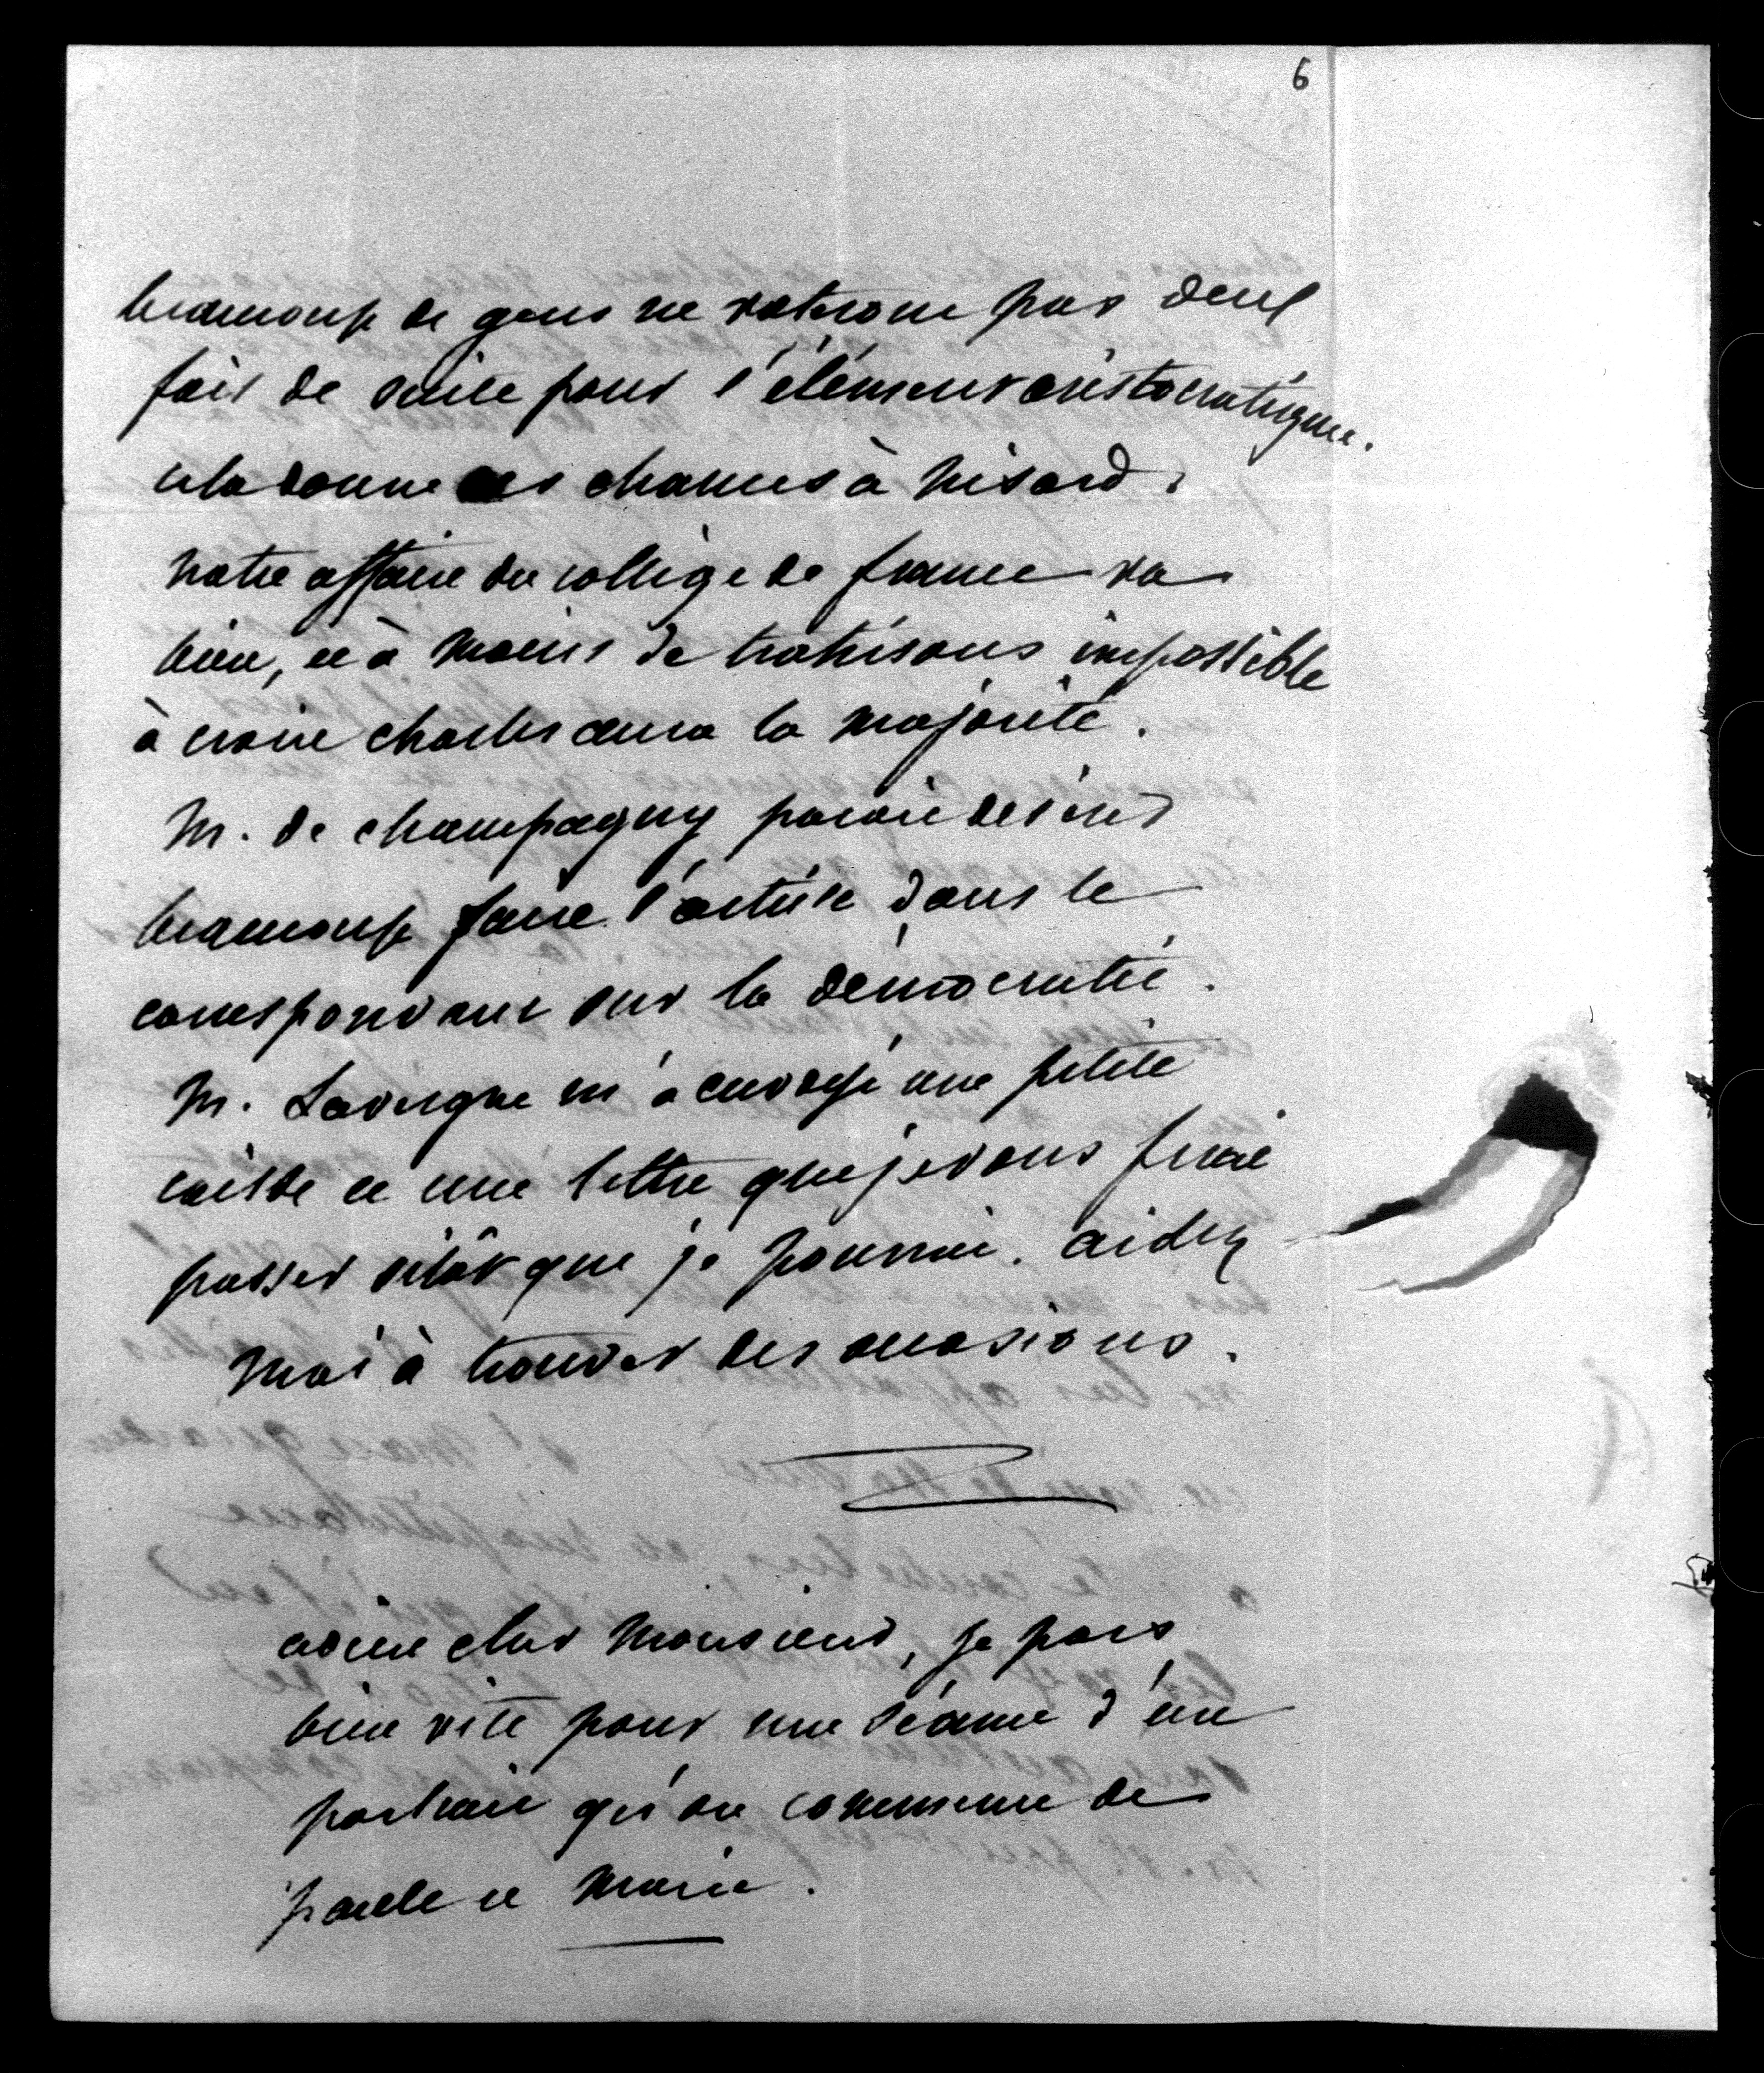 6
beaucoup de gens ne voterons pas deux
fois de suite pour l'élément aristocratique.
cela donne des chances à Nisard.
Notre affaire du collège de france va
bien, et à moins de trahisons impossible
à croire charles aura la majorité.
M. de champagny paraît désirer
beaucoup faire l'article dans le
correspondant sur la démocratie.
M. Lavergne m'a envoyé une petite
caisse et une lettre que je vous ferai
passer sitôt que je pourrai. aidez
moi à trouver des occasions.
adieu cher Monsieur, je pars
bien vite pour une séance d'un
portrait qu'on commence de
paule et Marie.